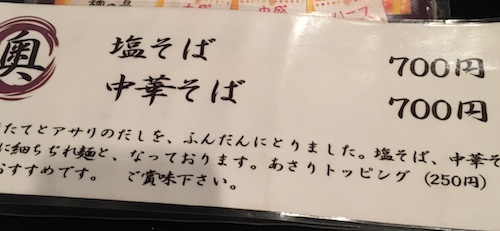 奥
塩そば 700円
中華そば 700円
たてとアサリのだしを、ふんだんにとりました。塩そば、中華そ
に細ちぢれ麺と、なっております。あさりトッピング（250円）
おすすめです。　ご賞味下さい。